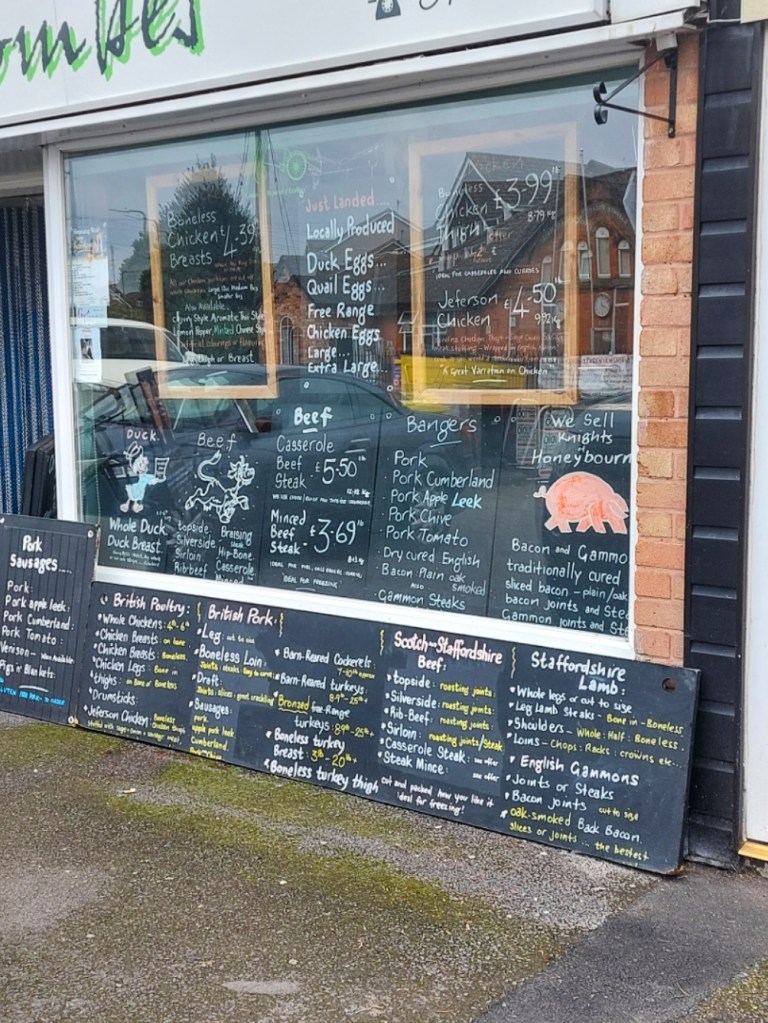 Boneless
Chicken £4.39
Breasts
Also Available
Just Landed....
Locally Produced
Duck Eggs...
Quail Eggs...
Free Range
Chicken Eggs
Large...
Extra Large...
Boneless £3.99
Chicken
Thigh
IDEAL FOR CASSEROLES AND CURRIES
Jeferson £4.50
Chicken
"A Great Variation on Chicken"
Duck.
Whole Duck
Duck Breast.
Beef
topside
Silverside
Sirloin
Rib-beef
Braising
Hip-Bone
Casserole
Mince
Beef
Casserole
Beef £5.50
Steak
Minced
Beef £3.69
Steak
IDEAL FOR FREEZING
Bangers
Pork
Pork Cumberland
Pork Apple Leek
Pork Chive
Pork Tomato
Dry cured English
Bacon Plain oak
smoked
Gammon Steaks
We Sell
Knights
Honeybourn
Bacon and Gammo
traditionally cured
sliced bacon - plain/oak
bacon joints and Ste
Gammon joints and Ste
Pork
Sausages...
Pork:
Pork apple leek:
Pork Cumberland:
Pork Tomato
Venison -
Pigs 'n' Blankets:
British Poultry:
Whole Chickens:
Chicken Breasts: on bone
Chicken Breasts: Boneless.
Chicken Legs: Bone in
thighs: on Bone or Boneless
Drumsticks:
Jeferson Chicken: Boneless
British Pork:
Leg: cut to size
Boneless Loin:
Draft:
Joints: slices: great crackling
Sausages:
pork.
apple pork leek
Cumberland.
Barn-Reared Cockerels:
Barn-Reared turkeys:
Bronzed free-Range
turkeys:
Boneless turkey
Breast:
Boneless turkey thigh
Scotch-Staffordshire
Beef:
topside: roasting joints:
Silverside: roasting joints.
Rib-Beef: roasting joints.
Sirloin: roasting joints/steak
Casserole Steak: see offer
Steak Mince: see offer
cut and packed how you like it
ideal for freezing!
Staffordshire
Lamb:
Whole legs or cut to size
Leg Lamb Steaks - Bone in - Boneless
Shoulders - Whole: Half: Boneless.
Loins - Chops: Racks: crowns etc...
English Gammons
Joints or Steaks
Bacon joints cut to size
oak-smoked Back Bacon.
slices or joints ... the bestest